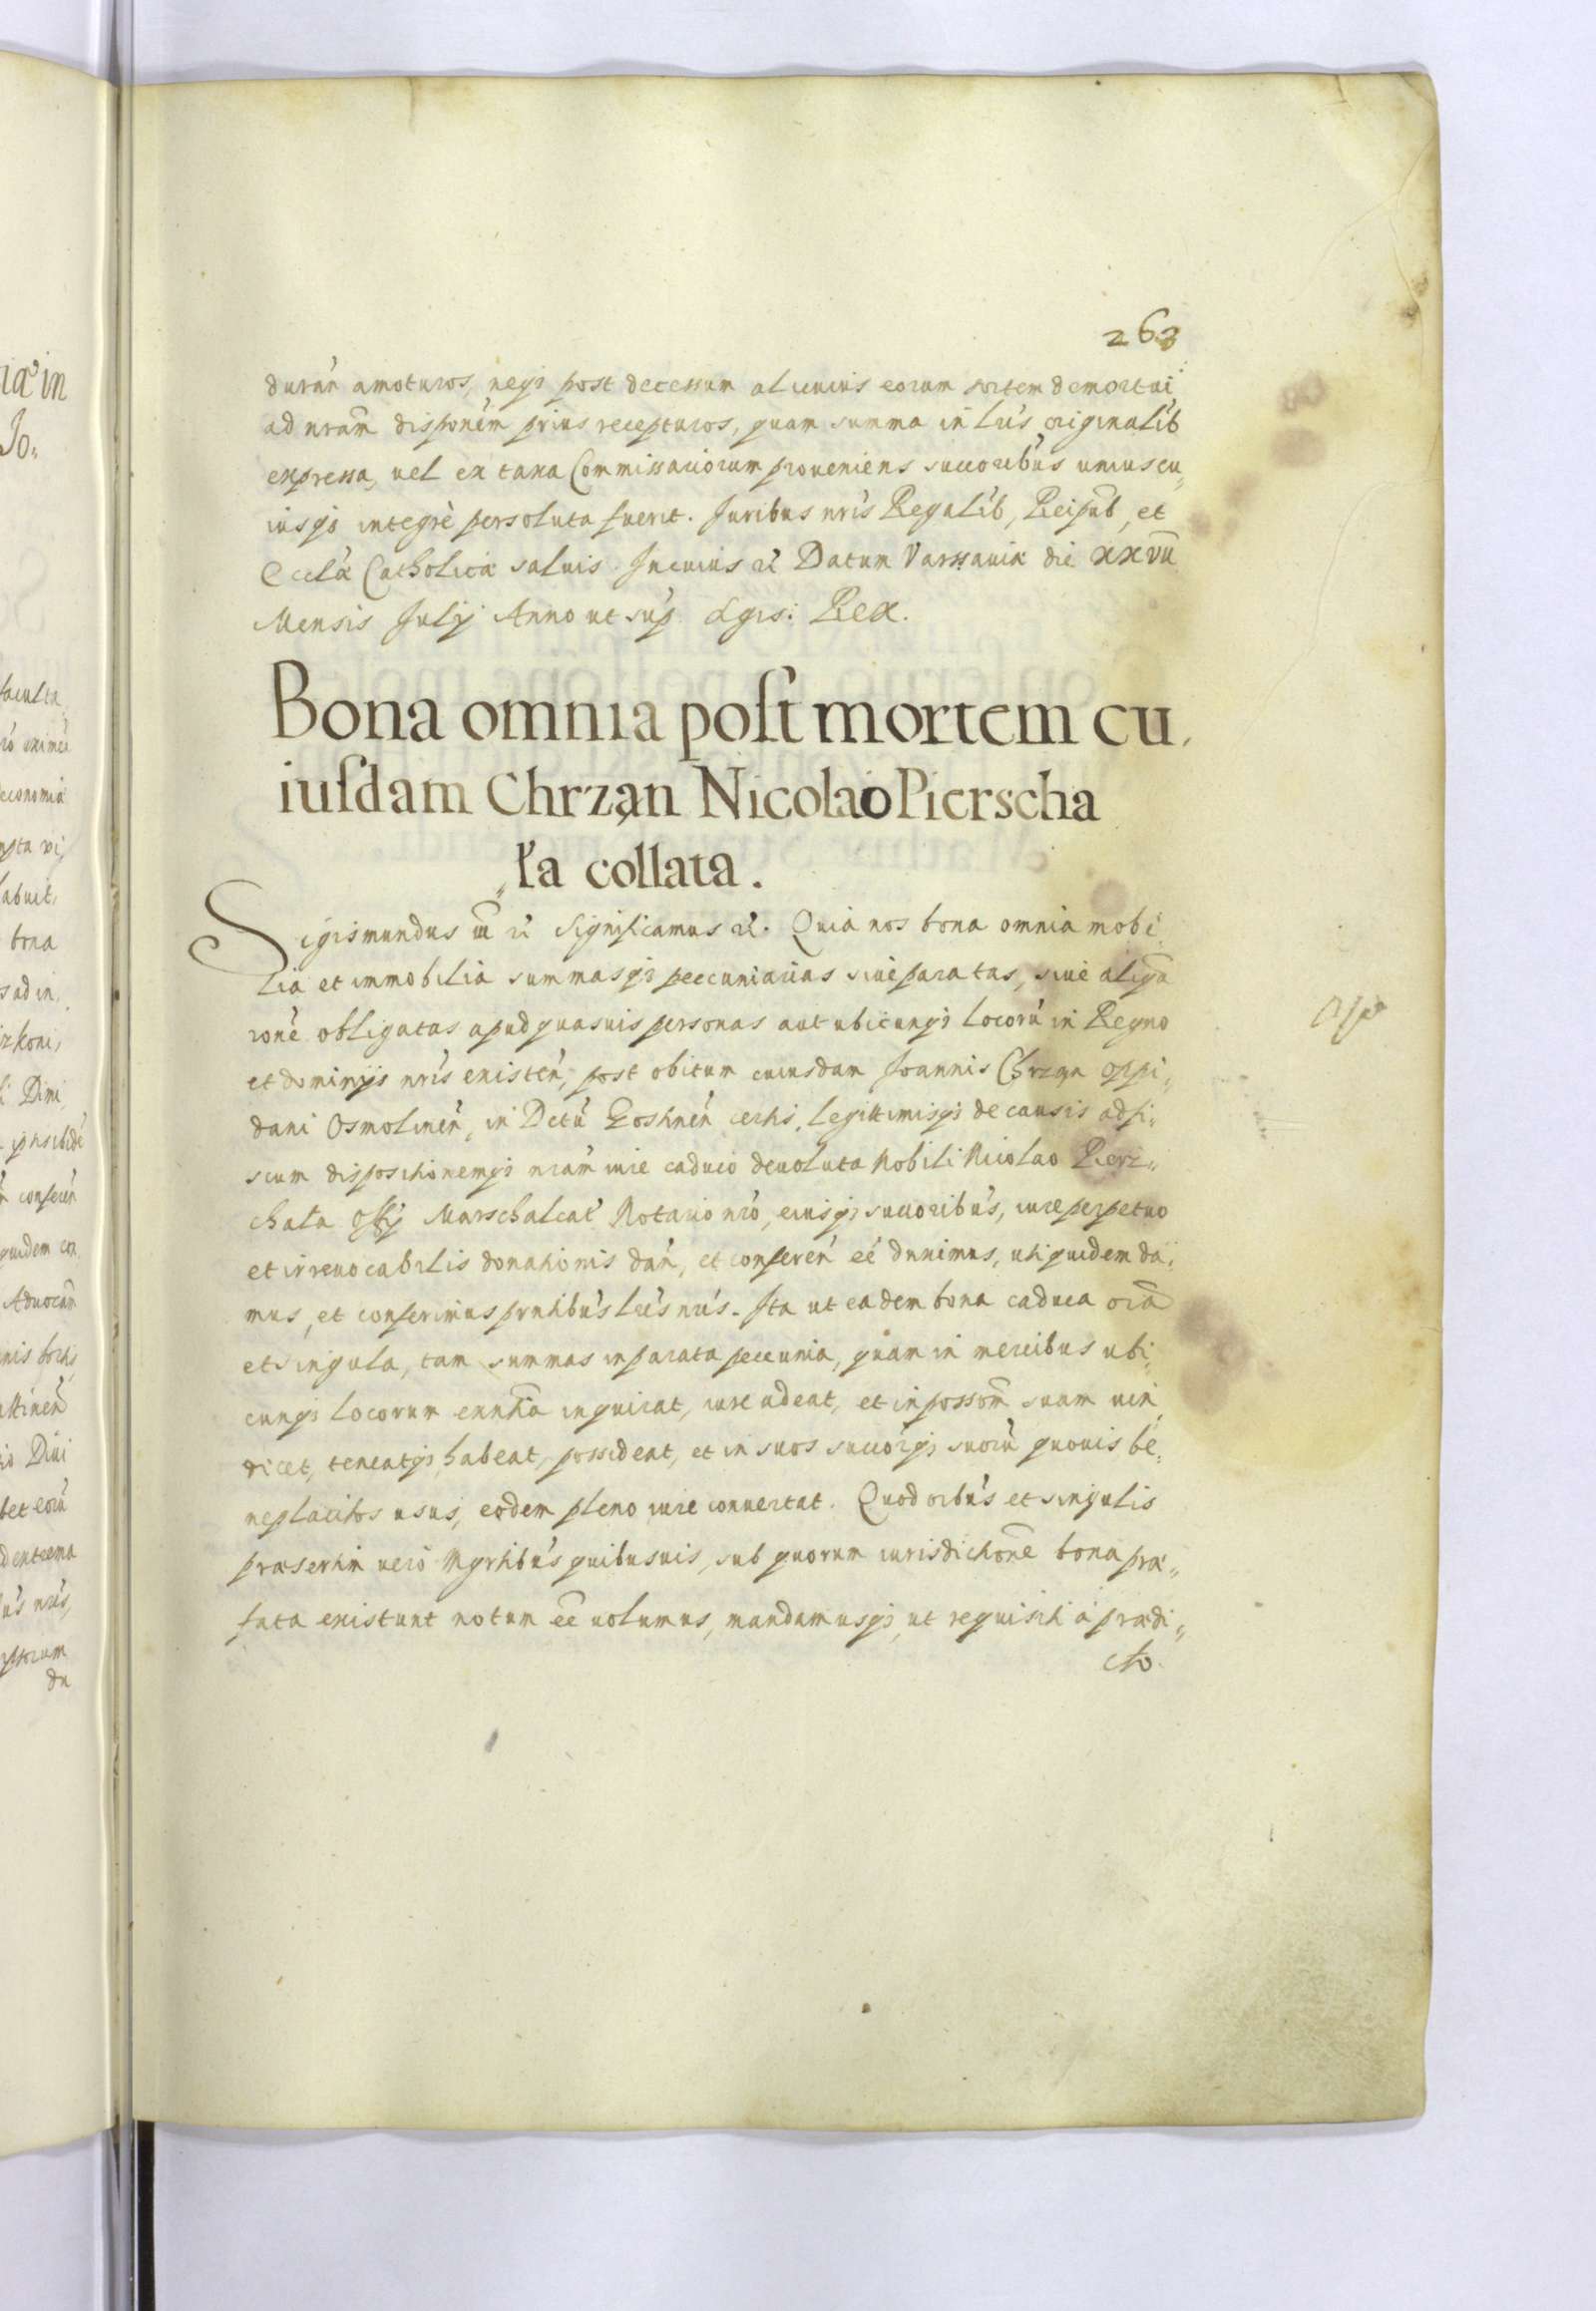 263
durań amoturos, neqз post decessum alicuius eorum sortem demortui
ad nram̃ disponem̃ prius recepturos, quam summa in lris originalib
expressa, uel ex taxa Commissariorum proueniens succoribus uniuscu„
iusqз integrè persoluta fuerit. Juribus nris Regalib, Reipub, et
Eccla Catholica saluis. Jn cuius rei Datum Varssauiæ die xxvii
Mensis Julij Anno ut sup. Sgis: Rex.
Bona omnia post mortem cu„
iusdam Chrząn Nicolao Pierscha
„ła collata.
Sigismundus iii rc Significamus rc. Quia nos bona omnia mobi„
lia et immobilia summasqз peccuniarias siue paratas, siue aliqua
rone obligatas apud quasuis personas aut ubicunqз locorũ in Regno
et dominijs nris existeń, post obitum cuiusdam Joannis Chrząn oppi„
dani Osmolineń, in Dctũ Goshneń certis, legittimisqз de causis ad fi„
scum dispositionemqз nram iure caduco deuoluta Nobili Nicolao Piers„
chała Offij Marschalcat Notario nro, eiusqз succoribus, iure perpetuo
et irreuocabilis donationis dań, et confereń eé duximus, uti quidem da„
mus, et conferimus pntibus lris nris. Ita ut eadem bona caduca oia
et singula, tam summas in parata peccunia, quam in mercibus ubi„
cunqз locorum exntia inquirat, iure adeat, et in possom̃ suam uin„
dicet, teneatqз habeat, possideat, et in suos succorqз suorũ quouis be„
neplacitos usus, eodem pleno iure conuertat. Quod oibus et singulis
præsertim uero Mgrtibus quibusuis, sub quorum iurisdictione bona præ„
fata existunt notum eé uolumus, mandamusqз, ut requisiti à prædi„
cto